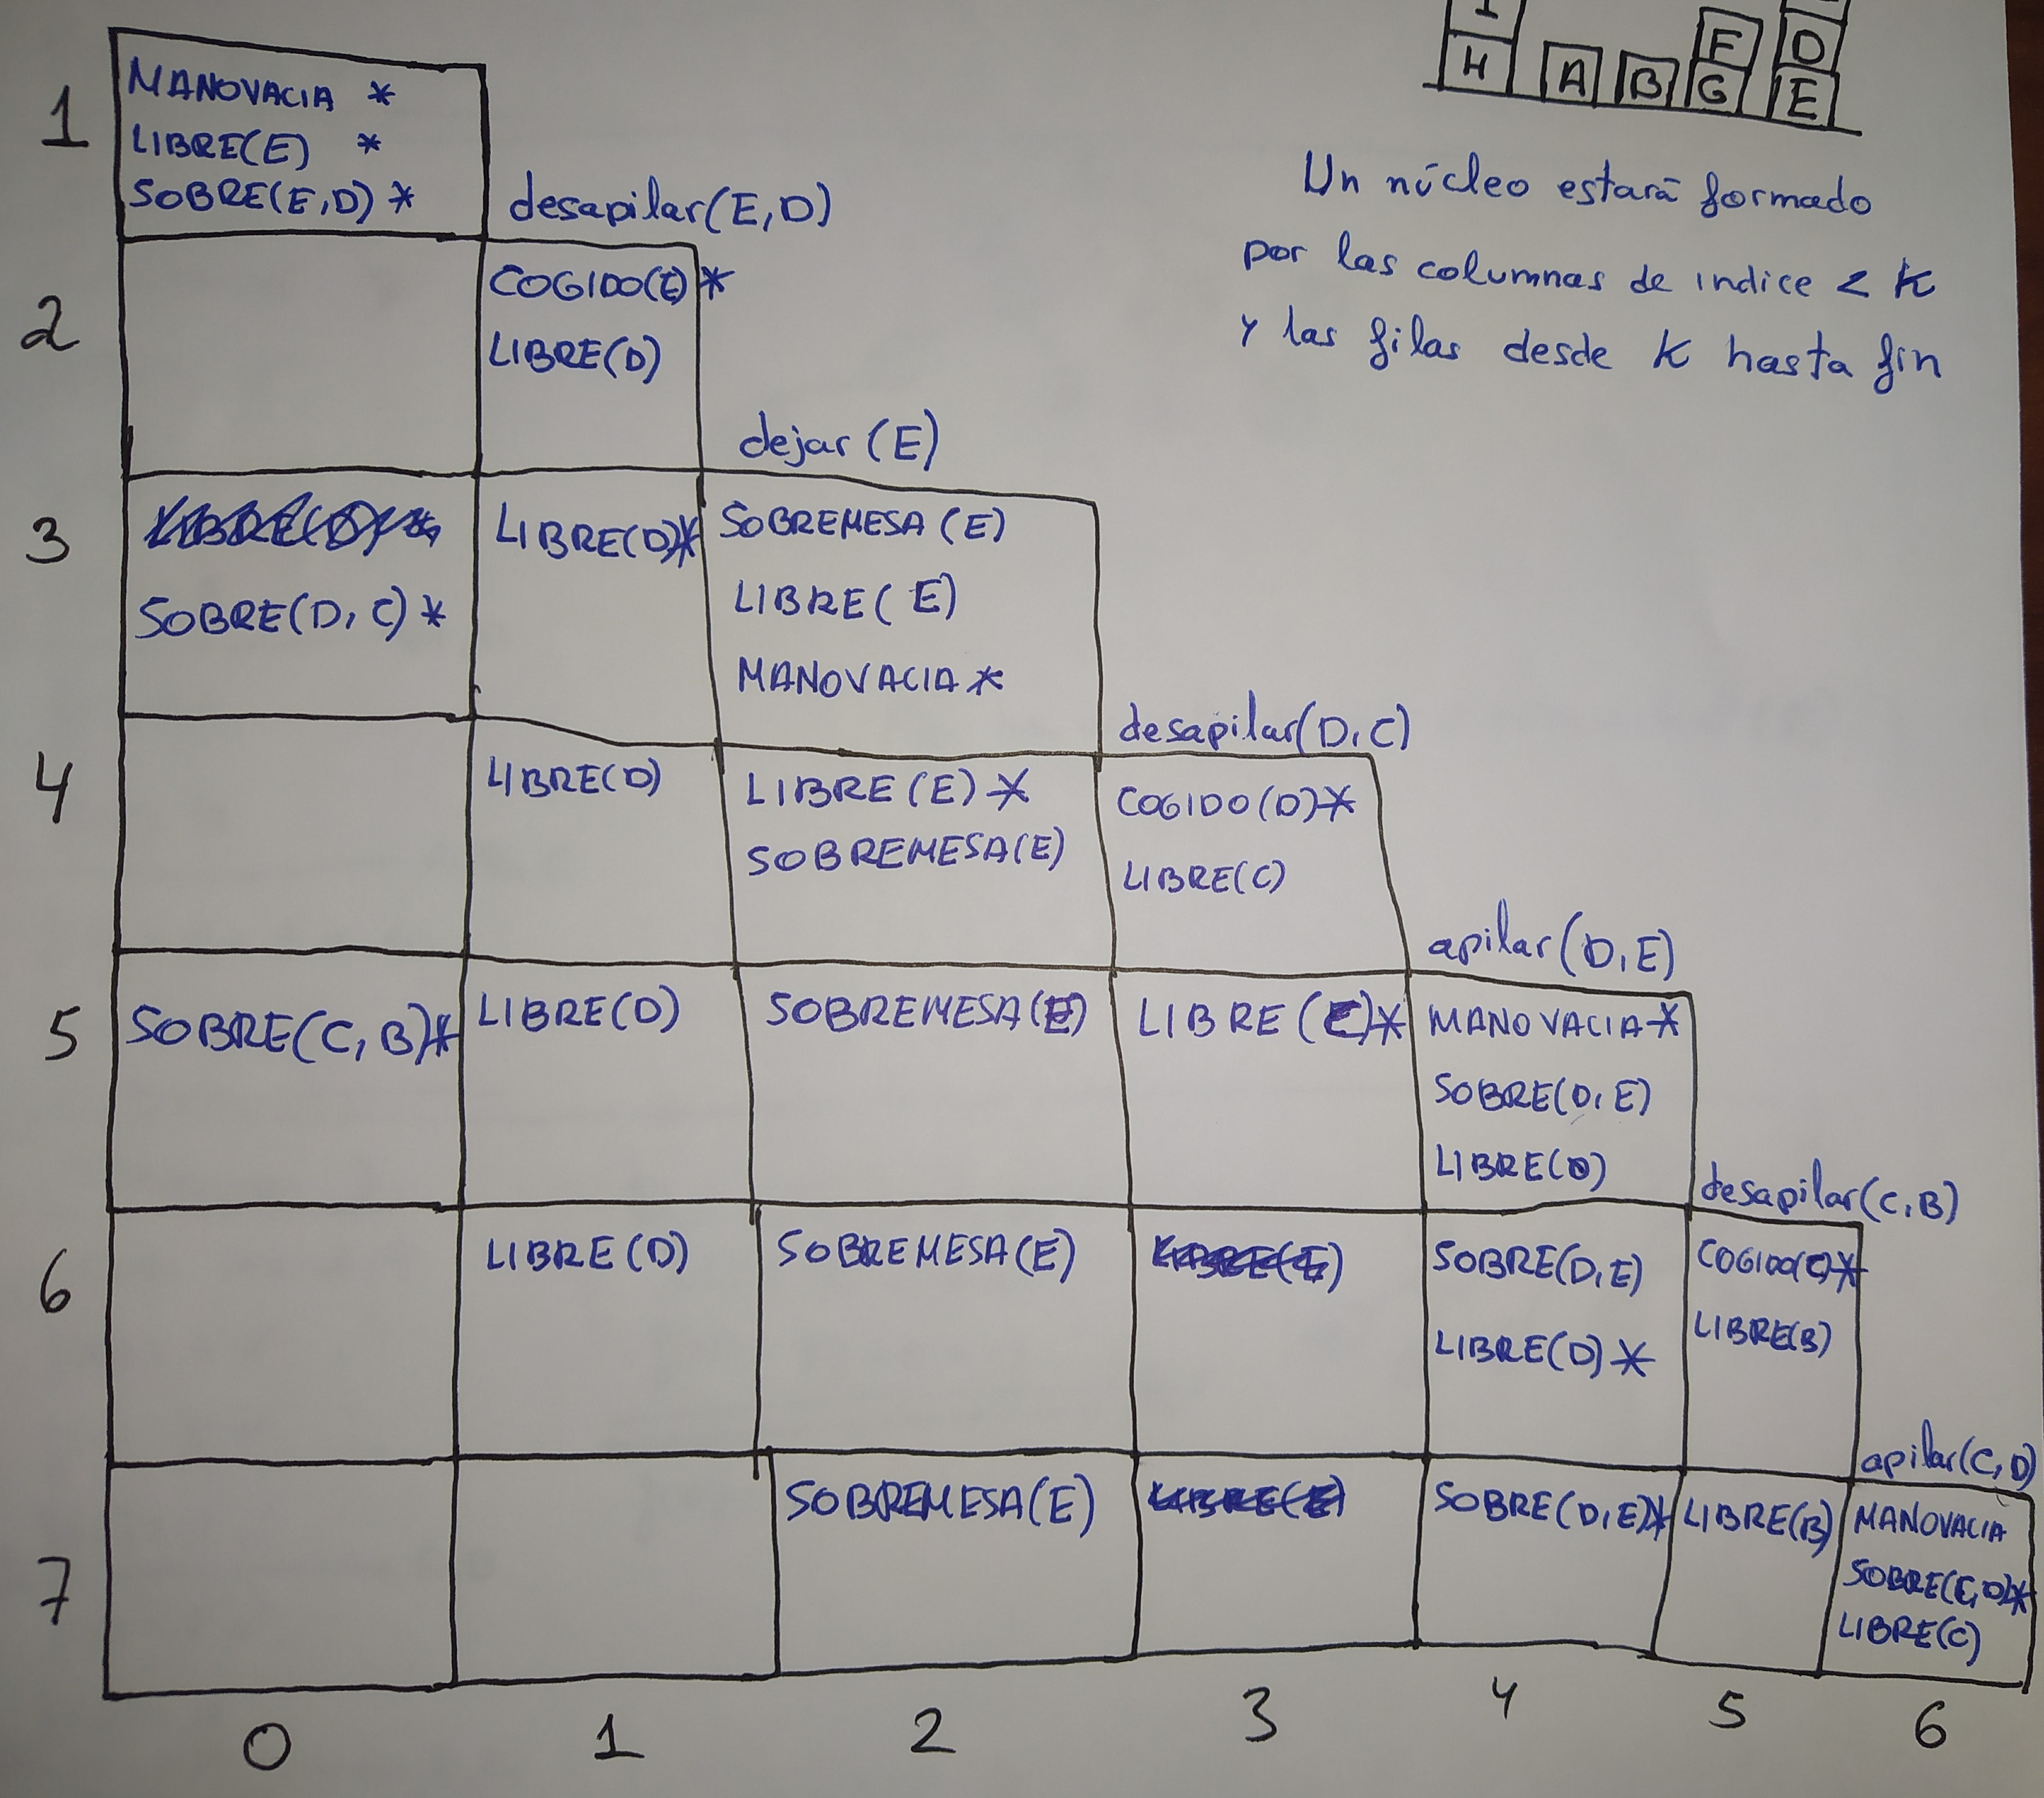 I
F D
H A B G E
Un núcleo estará formado
por las columnas de indice < K
y las filas desde K hasta fin
1
MANOVACIA *
LIBRE(E) *
SOBRE(E,D) *
desapilar(E,D)
2
COGIDO(E)*
LIBRE(D)
dejar (E)
3
SOBRE(D,C)*
LIBRE(D)*
SOBREMESA (E)
LIBRE( E)
MANOVACIA *
desapilar(D,C)
4
LIBRE(D)
LIBRE(E) *
SOBREMESA(E)
COGIDO(D)*
LIBRE(C)
apilar(D,E)
5
SOBRE(C,B)*
LIBRE(D)
SOBREMESA(E)
LIBRE (C)*
MANOVACIA *
SOBRE(D,E)
LIBRE(D)
desapilar(C,B)
6
LIBRE(D)
SOBREMESA(E)
SOBRE(D,E)
LIBRE(D) *
COGIDO(C)*
LIBRE(B)
apilar(C,D)
7
SOBREMESA(E)
SOBRE(D,E)*
LIBRE(B)
MANOVACIA
SOBRE(C,D)*
LIBRE(C)
0 1 2 3 4 5 6